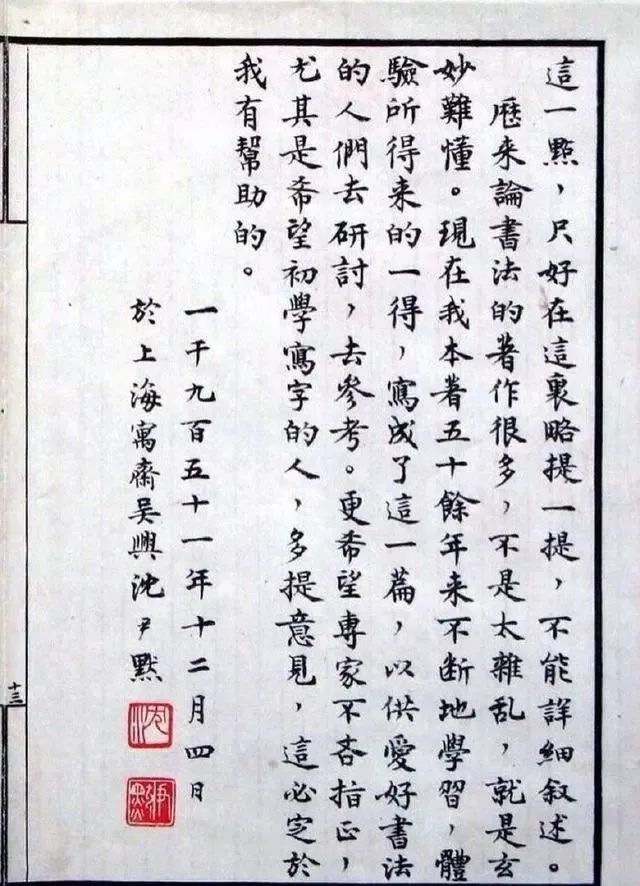 這一點，只好在這裏略提一提，不能詳細叙述。
歷来論書法的著作很多，不是太雜乱，就是玄
妙難懂。現在我本着五十餘年来不断地學習，體
驗所得来的一得，寫成了這一篇，以供愛好書法
的人們去研討，去參考。更希望專家不吝指正，
尤其是希望初學寫字的人，多提意見，這必定於
我有幫助的。
一千九百五十一年十二月四日
於上海寓齋吴興沈尹默
沈
尹默
十三